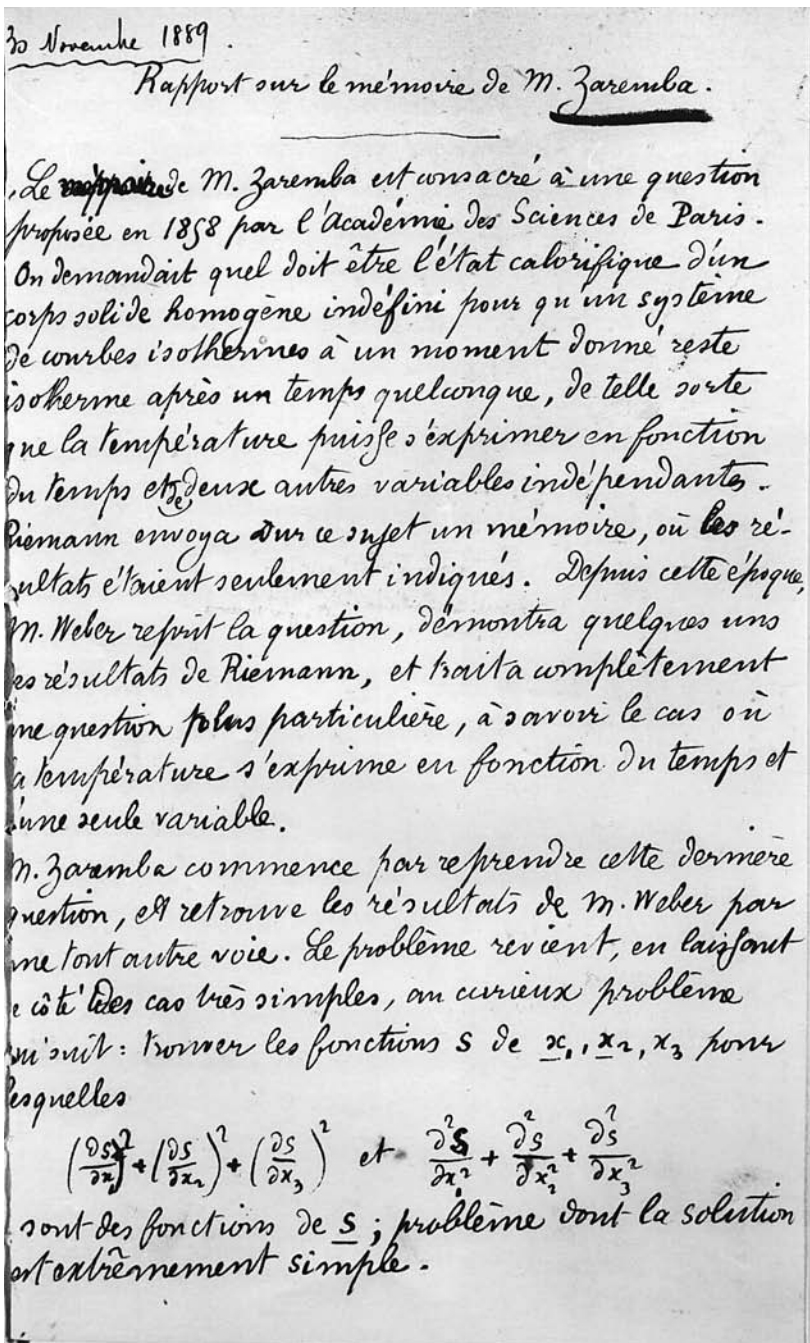 30 Novembre 1889.
Rapport sur le mémoire de M. Zaremba.
Le mémoire de M. Zaremba est consacré à une question
proposée en 1858 par l'Académie des Sciences de Paris.
On demandait quel doit être l'état calorifique d'un
corps solide homogène indéfini pour qu'un système
de courbes isothermes à un moment donné reste
isotherme après un temps quelconque, de telle sorte
que la température puisse s'exprimer en fonction
du temps et de deux autres variables indépendantes.
Riemann envoya sur ce sujet un mémoire, où les ré-
sultats étaient seulement indiqués. Depuis cette époque,
M. Weber reprit la question, démontra quelques uns
des résultats de Riemann, et traita complètement
une question plus particulière, à savoir le cas où
la température s'exprime en fonction du temps et
d'une seule variable.
M. Zaremba commence par reprendre cette dernière
question, et retrouve les résultats de M. Weber par
une tout autre voie. Le problème revient, en laissant
de côté des cas très simples, au curieux problème
qui suit : trouver les fonctions S de x₁, x₂, x₃ pour
lesquelles
(∂S/∂x₁)² + (∂S/∂x₂)² + (∂S/∂x₃)² et ∂²S/∂x₁² + ∂²S/∂x₂² + ∂²S/∂x₃²
sont des fonctions de S ; problème dont la solution
est extrêmement simple.